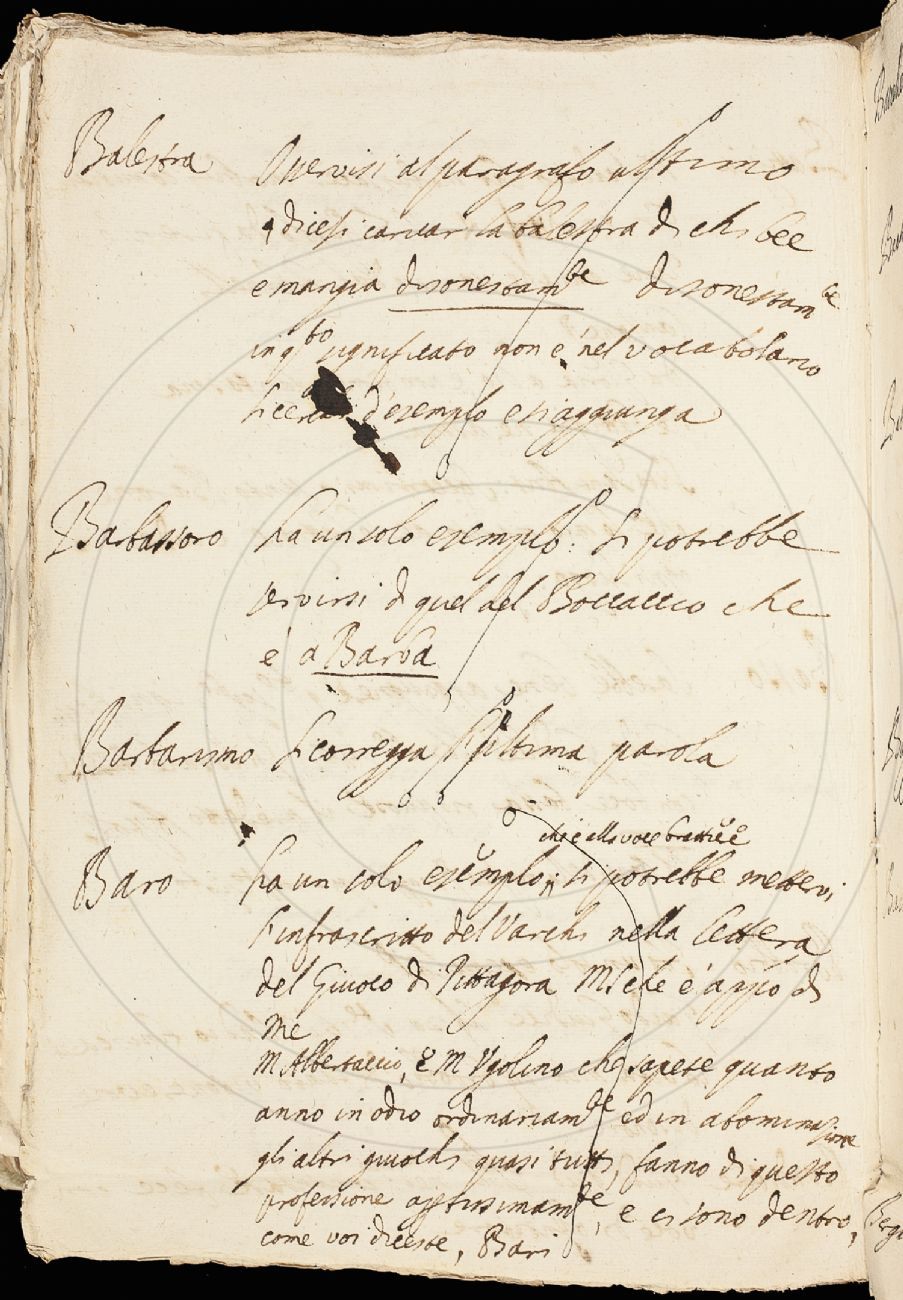 Balestra Osservisi al paragrafo ultimo
dicesi caricar la balestra di chi bee
e mangia disonestamte disonestamte
in qto significato non è nel vocabolario
si cerchi d'esemplo e si aggiunga
Barbassoro ha un solo esemplo. si potrebbe
servirsi di quel del Boccaccio che
è a Barba
Barbarismo si corregga l'ultima parola
che è alla voce
Baro ha un solo esemplo; si potrebbe mettervi
l'infrascritto del Varchi nella lettera
del Giuoco di Pittagora MS che è appo di
me
M Albertaccio, e M Ugolino che sapete quanto
anno in odio ordinariamte ed in abominazione
gli altri giuochi quasi tutti, fanno di questo
professione apertissimamte, e ci sono dentro,
come voi diceste, Bari